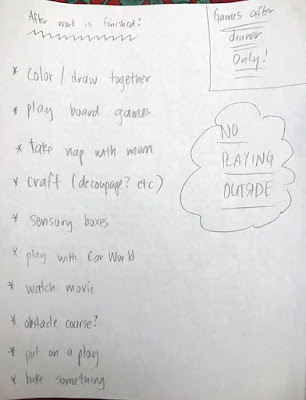 After work is finished:
* color / draw together
* play board games
* take nap with mom
* craft (decoupage? etc)
* sensory boxes
* play with Ear World
* watch movie
* obstacle course?
* put on a play
* bake something
Games after
dinner
Only!
NO
PLAYING
OUTSIDE